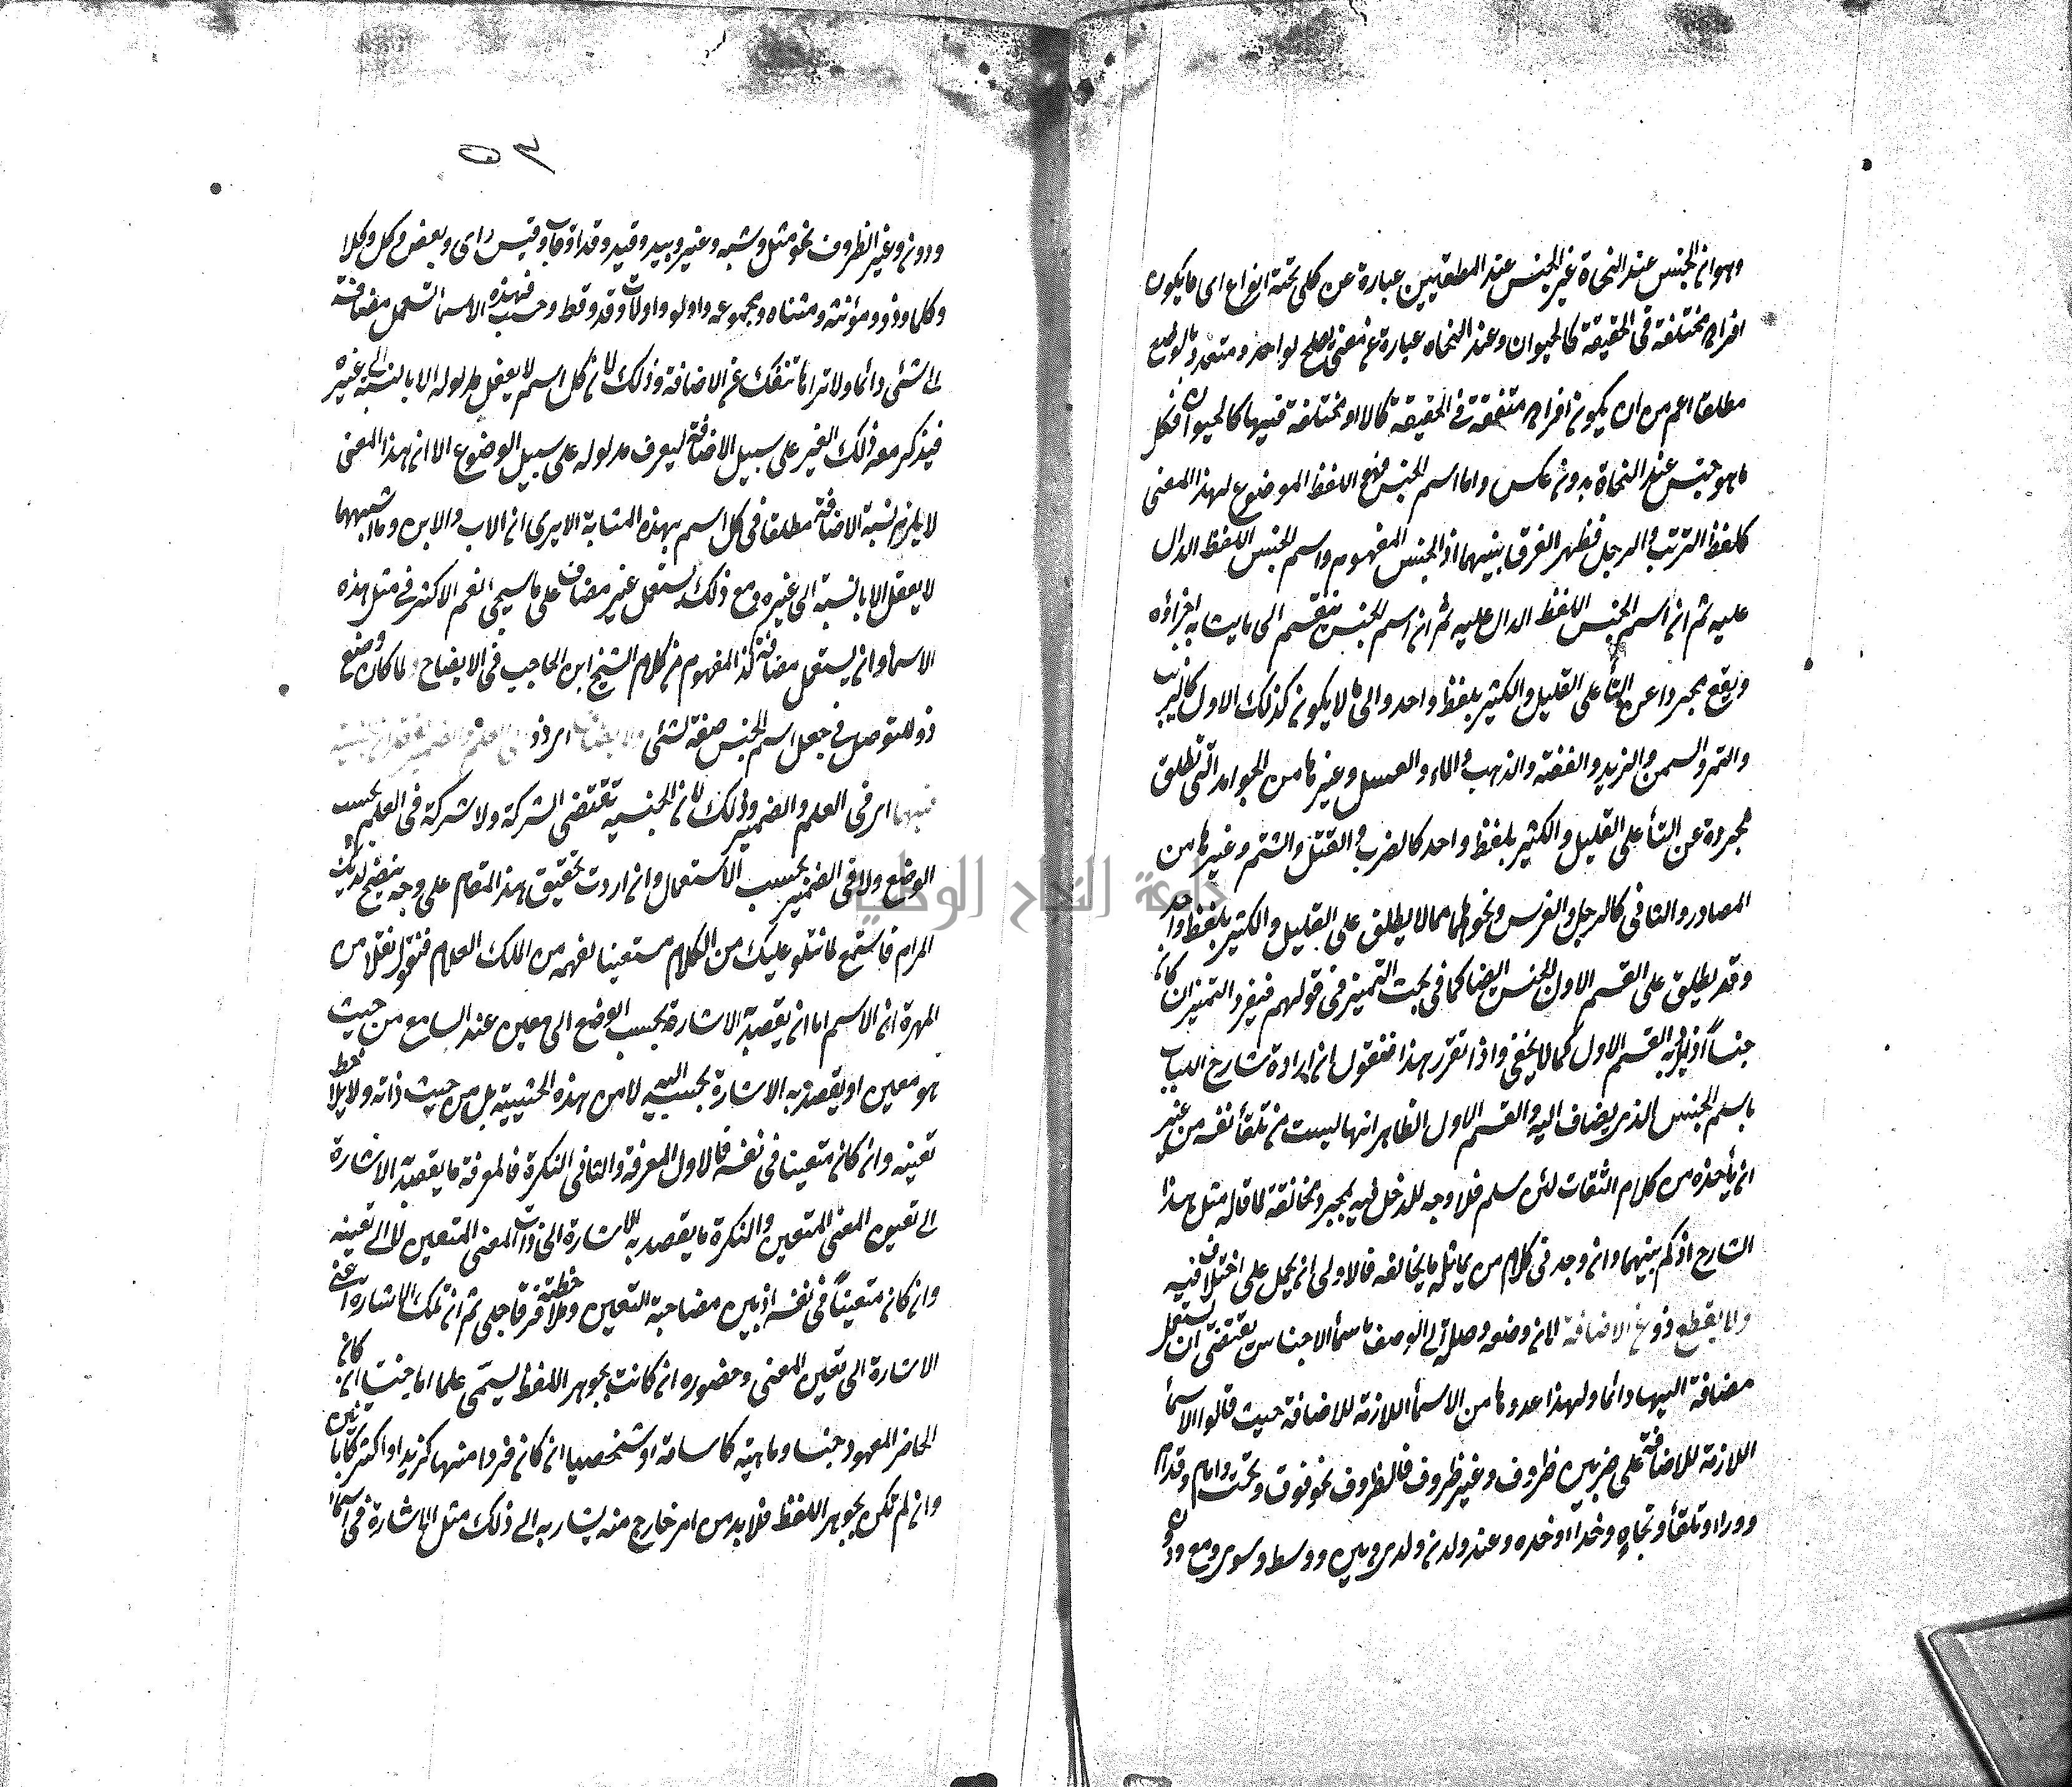 وهو ان الجنس عند النحاة غير الجنس عند المنطقيين عبارة عن كلى تحته انواع اى ما يكون
افراده مختلفة فى الحقيقة كالحيوان وعند النحاه عبارة عن معنى يصلح لواحد ومتعدد بالوضع
مطلقا اعم من ان يكون افراده متفقة فى الحقيقة كالا او مختلفة فيها كالحيوان فكل
ما هو جنس عند النحاة بدون عكس واما اسم الجنس فهو اللفظ الموضوع لهذا المعنى
كلفظ الترتب والرجل فظهر الفرق بينهما اذ الجنس المفهوم واسم الجنس اللفظ الدال
عليه ثم ان اسم الجنس اللفظ الدال عليه ثم ان اسم الجنس ينقسم الى ما يتشابه اجزاؤه
ويقع مجردا عن التأ على القليل والكثير بلفظ واحد والى ما لا يكون كذلك الاول كالزيت
والتمر والسمن والزيد والفضة والذهب والماء والعسل وغيرها من الجوامد التى تطلق
مجردة عن التأ على القليل والكثير بلفظ واحد كالضرب والقتل والشتم وغيرها من
المصادر والثانى كالرجل والفرس ونحوهما مما لا يطلق على القليل والكثير بلفظ واحد
وقد يطلق على القسم الاول الجنس ايضا كما فى بحث التمييز فى قولهم فيفرد التمييز ان كان
جنساً اذ يراد به القسم الاول كما لا يخفى واذا تقرر هذا فنقول ان ارادة شارح اللباب
باسم الجنس الذى يضاف اليه والقسم الاول الظاهر انها ليست من تلقأ نفسه من غير
ان يأخذه من كلام الثقات لئن سلم فلا وجه للدخل فيه بمجرد مخالفة لما قاله مثل هذا
الشارح اذ كم بينهما وان وجد فى كلام من يماثله ما يخالفه فالاولى ان يحمل على اختلاف فيه
ولا يقطع ذو عن الاضافة لان وضعه وصلة الى الوصف باسمأ الاجناس يقتضى ان يستعمل
مضافة اليها دائما ولهذا عدوها من الاسمأ اللازمة للاضافة حيث قالوا الاسمأ
اللازمة للاضافة على ضربين ظروف وغير ظروف فالظروف نحو فوق وتحت وامام وقدام
وورا وتلقأ وتجاه وحذا وحذه وعند ولدن ولدى وبين ووسط وسوى ومع ودون
٣٥
ودون وغير الظروف نحو مثل وشبه وغير وبيد وقيد وقدا وقاب وقيس واى وبعض وكل وكلا
وكلتا وذو ومؤنثه ومثناه ومجموعه واولو واولات وقد وقط وحسب فهذه الاسمأ تستعمل مضافة
الى شئى دائما ولا تراها تنفك عن الاضافة وذلك لان كل اسم لا يعقل مدلوله الا بالنسبة الى غيره
فيذكر معه ذلك الغير على سبيل الاضافة ليعرف مدلوله على سبيل الوضوع الا ان هذا المعنى
لا يلزم نسبة الاضافة مطلقا فى كل اسم بهذه المثابة الا يرى ان الاب والابن وما اشبههما
لا يعقل الا بالنسبة الى غيره ومع ذلك يستعمل غير مضاف على ما سيجى نعم الاكثر فى مثل هذه
الاسمأ وان يستعمل مضافة كذا المفهوم من كلام الشيخ ابن الحاجب فى الايضاح ولما كان وضع
ذو للتوصل فى جعل اسم الجنس صفة لشئى ولا يضاف اى ذو الى علم وضمير لفقد ان الجنسية
فيها اى فى العلم والضمير وذلك لان الجنسية تقتضى الشركة ولا شركة فى العلم بحسب
الوضع ولا فى الضمير بحسب الاستعمال وان اردت تحقيق هذا المقام على وجه يتضح لديك
المرام فاستمع لما نتلو عليك من الكلام مستعينا لفهمه من الملك العلام فنقول نقلا من
المهرة ان الاسم اما ان يقصد به الاشارة بحسب الوضع الى معين عند السامع من حيث
هو معين او يقصد به الاشارة بحسب اليه لا من هذه الحيثية بل من حيث ذاته ولا يلاحظ
تعينه وان كان متعينا فى نفسه فالاول المعرفة والثانى النكرة فالمعرفة ما يقصد به الاشارة
الى تعيين المعنى المتعين والنكرة ما يقصد به الاشارة الى ذات المعنى المتعين لا الى تعينه
وان كان متعيناً فى نفسه اذ بين مصاحبة التعين وملاحظته فرقا جلى ثم ان تلك الاشارة اعنى
الاشارة الى تعين المعنى وحضوره ان كانت بجوهر اللفظ يسمى علما اما جنسيا ان كان
الحاضر المعهود جنسا وماهية كاسامة او شخصيا ان كان فردا منها كزيد او اكثر كابانين
وان لم تكن بجوهر اللفظ فلا بد من امر خارج منه يشار به الى ذلك مثل الاشارة فى اسمأ
جامعة النجاح الوطنية